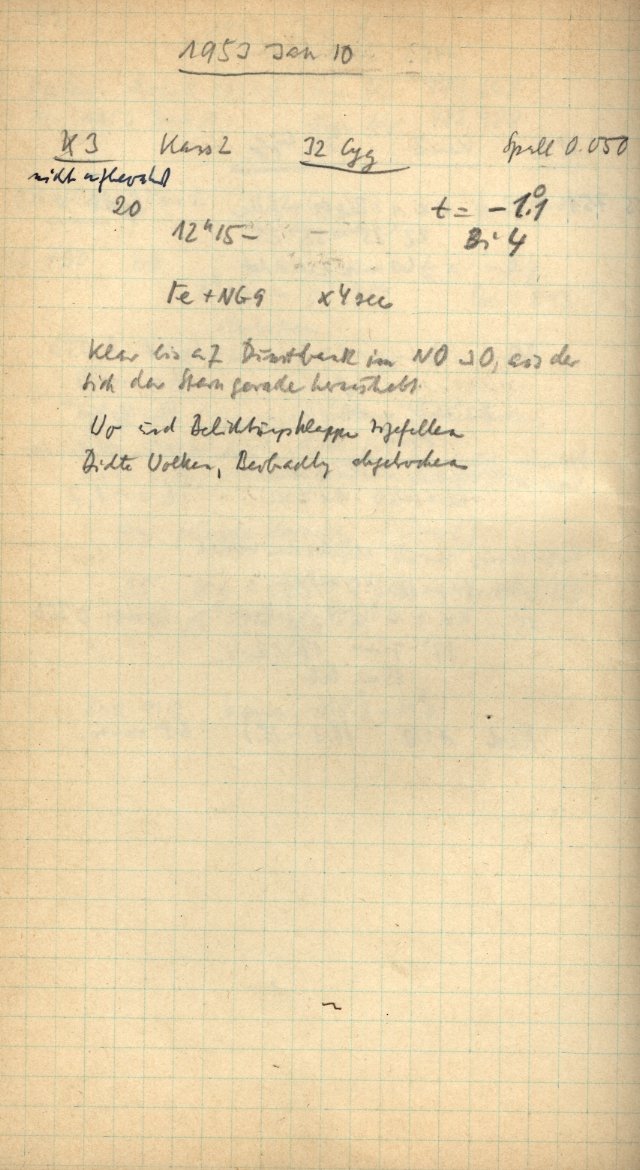 1953 Jan 10
K 3 Kass 2 32 Cyg Spalt 0.050
nicht aufbewahrt
20 t = -1.°1
12ʰ15- Bi 4
Fe + NG9 x 4 sec
Klar bis auf Dunstbank im NO → O, aus der
sich der Stern gerade heraushebt
Vo und Belichtungsklappe zugefallen
Dichte Wolken, Beobachtg abgebrochen